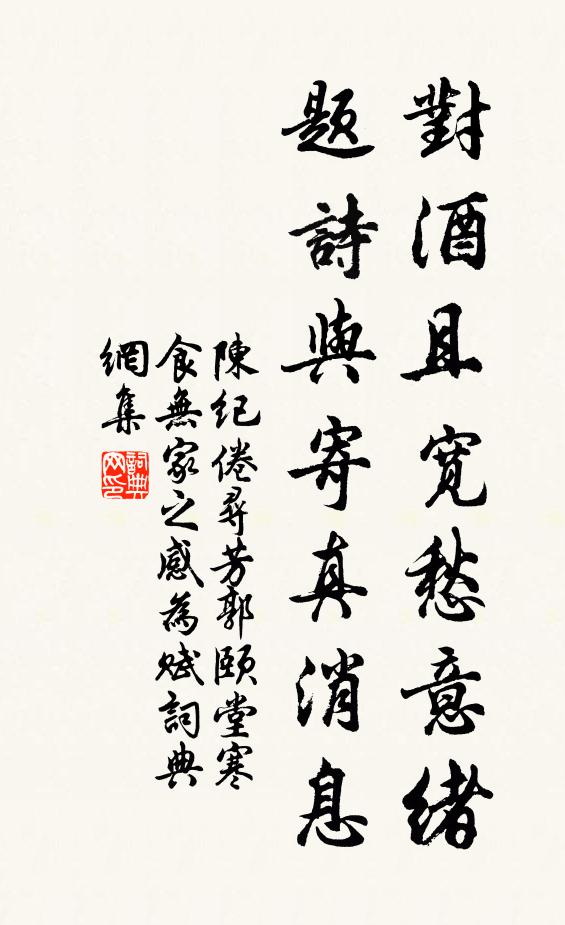 對酒且寬愁意緒
題詩與寄真消息
陳紀倦尋芳郭頤堂寒
食無家之感為賦詞典
網集
詞典網印